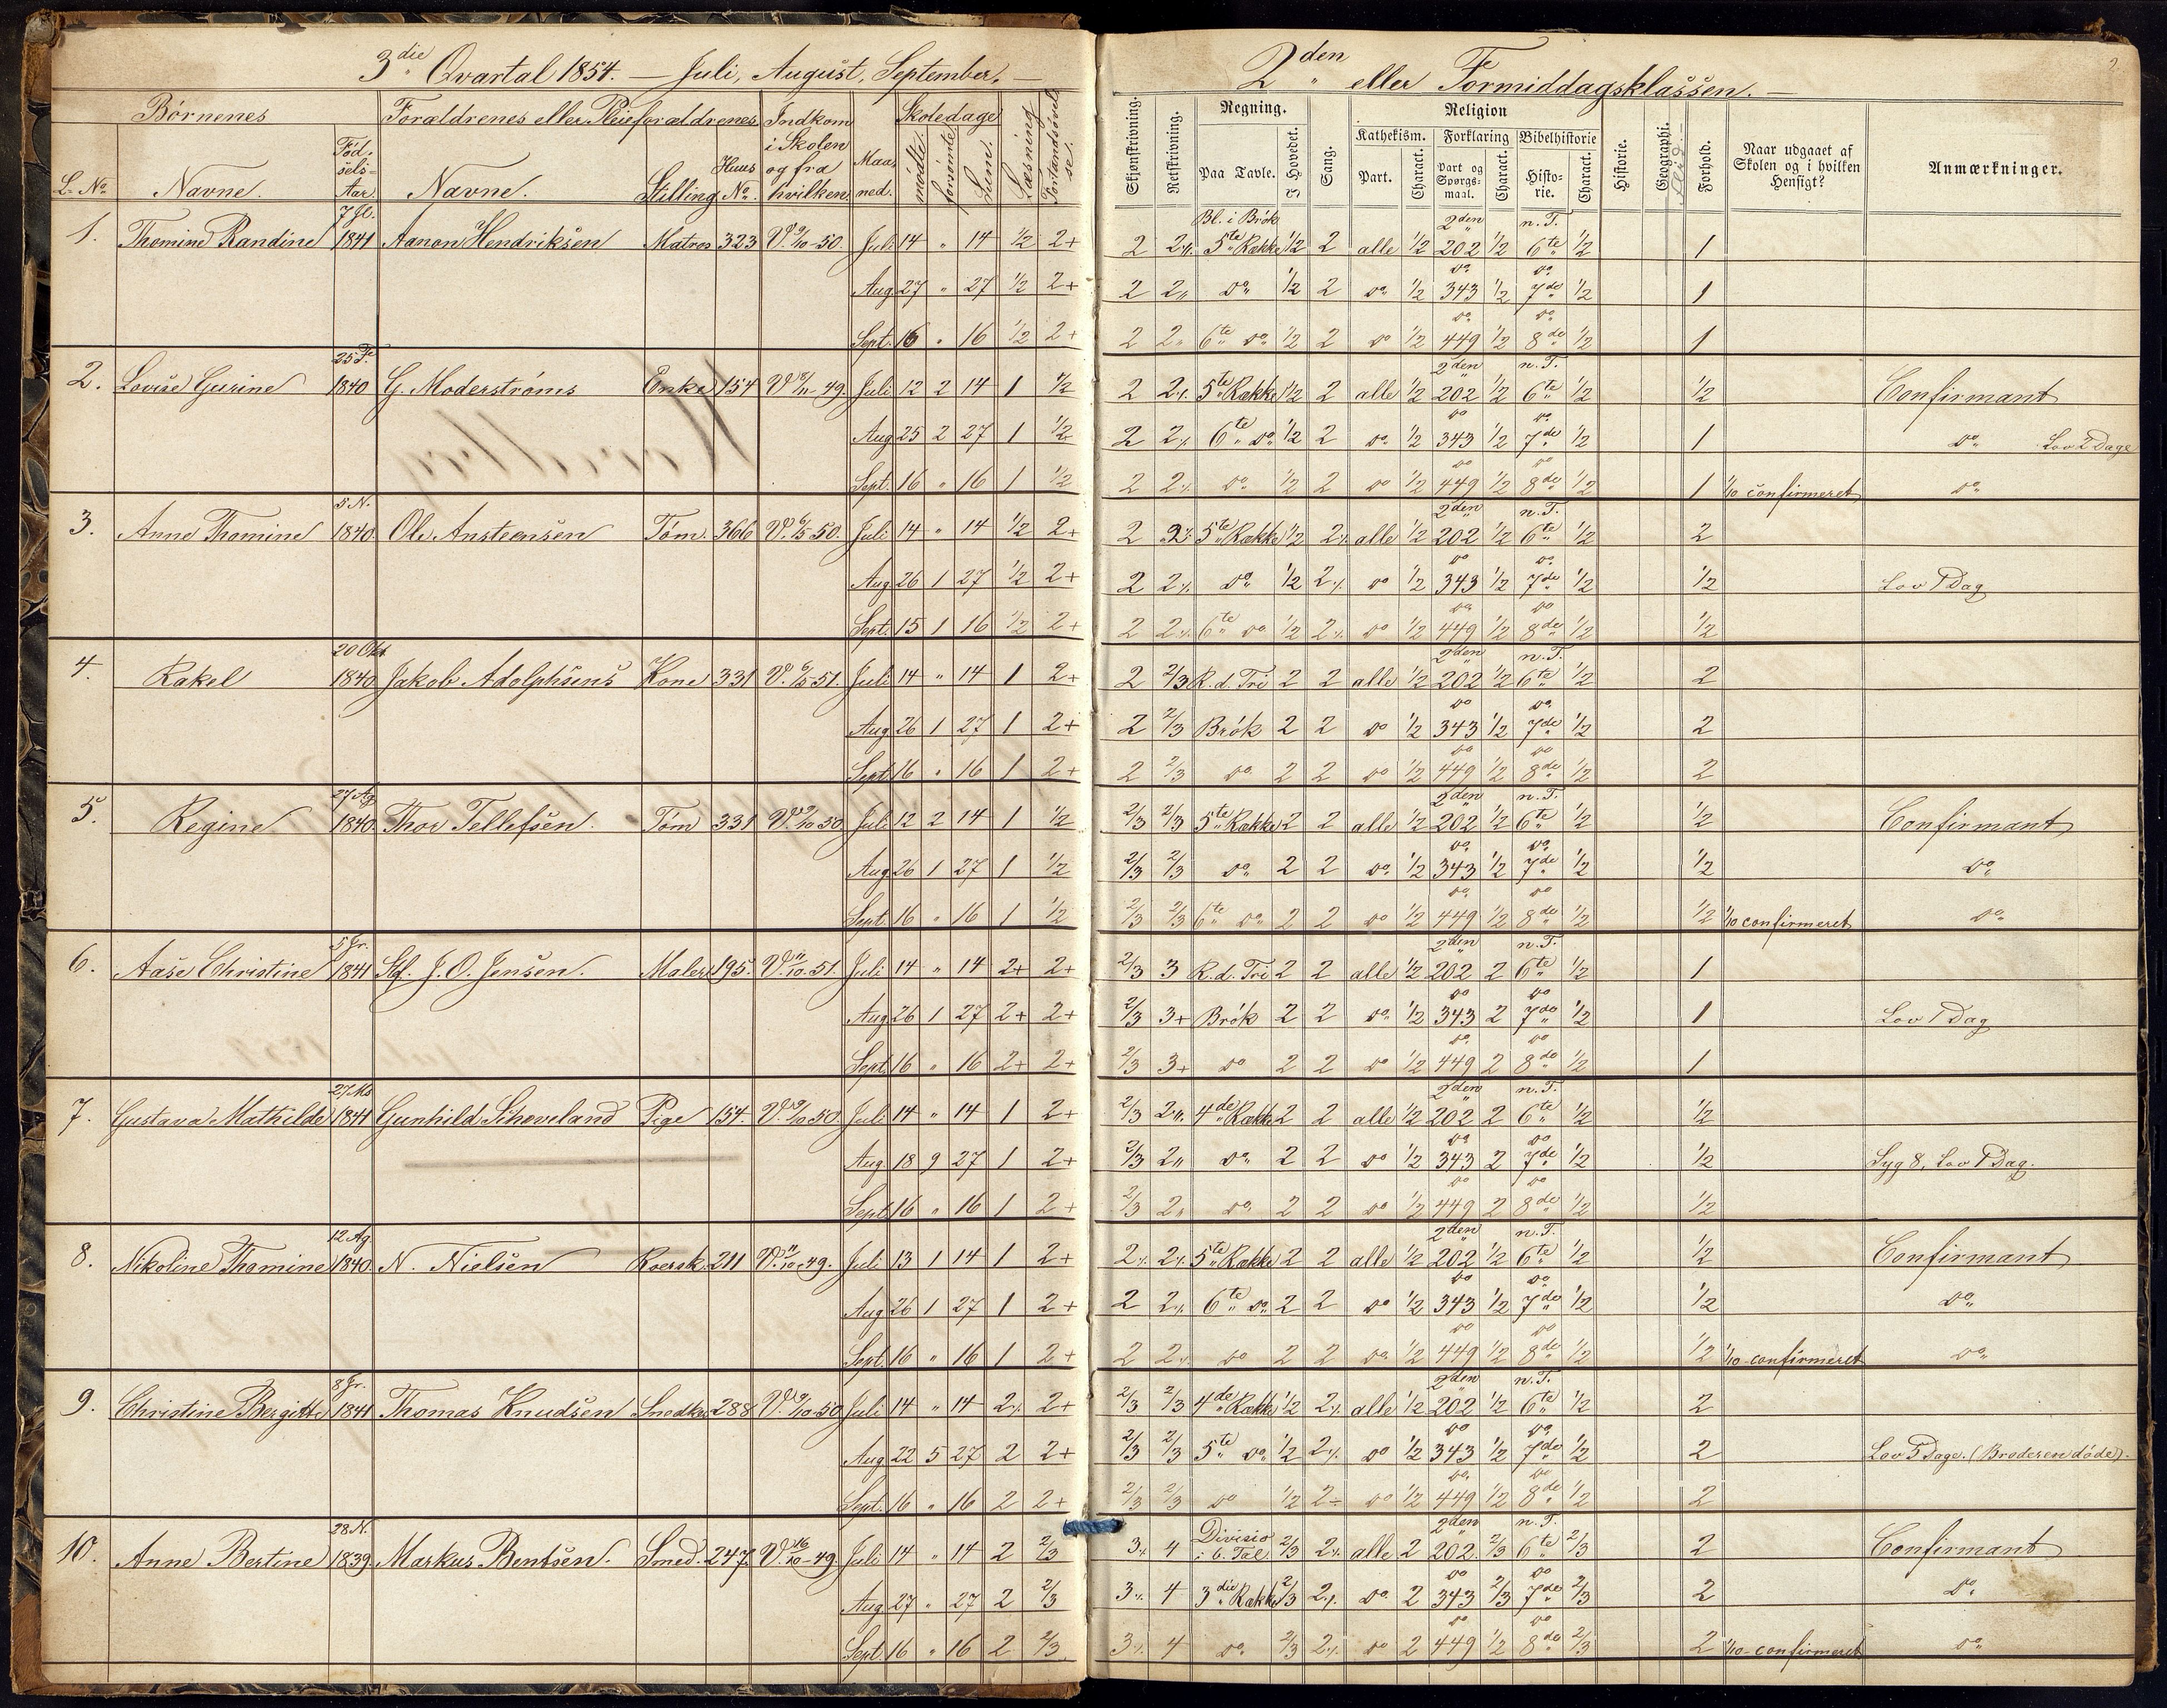 3die Qvartal 1854. — Juli, August, September. —
2den eller Formiddagsklassen. —
2.
Børnenes | Forældrenes eller Pleieforældrenes | Indkom i Skolen og fra hvilken | Maaned. | Skoledage | Læsning
L. No. | Navne. | Fødsels-Aar | Navne. | Stilling | Huus No. | mødte. | forsømte | Sum.
Skjønskrivning. | Retskrivning. | Regning. | Sang. | Religion | Historie. | Geographi. | Forhold. | Naar udgaaet af Skolen og i hvilken Hensigt? | Anmærkninger.
Paa Tavle. | I Hovedet. | Kathekism. | Forklaring | Bibelhistorie
Part. | Charact. | Part og Spørgsmaal. | Charact. | Historie. | Charact.
7 Jl. | Bl. i Brøk | 2den | n. T.
1. Thomine Randine 1841 Aanon Hendriksen Matros 323 V. 9/10-50. Juli 14 " 14 1/2 2+ | 2 2 5te Række 1/2 2 alle 1/2 202 1/2 6te 1/2 1
do do
Aug. 27 " 27 1/2 2+ | 2 2 do 1/2 2 do 1/2 343 1/2 7de 1/2 1
do do
Sept. 16 " 16 1/2 2+ | 2 2 6te do 1/2 2 do 1/2 449 1/2 8de 1/2 1
25 F. | 2den n. T.
2. Lovise Gurine 1840 G. Moderstrøms Enke 154 Juli 12 2 14 1 1/2 | 2 2 5te Række 1/2 2 alle 1/2 202 1/2 6te 1/2 1/2 Confirmant
do do
Aug. 25 2 27 1 1/2 | 2 2 6te do 1/2 2 do 1/2 343 1/2 7de 1/2 1 do Lov 2 Dage
do do
Sept. 16 " 16 1 1/2 | 2 2 do 1/2 2 do 1/2 449 1/2 8de 1/2 1 1/10 confirmeret do
5 N. | 2den n. T.
3. Anne Thomine 1840 Ole Ansteensen Tøm. 366 V. 6/5 50. Juli 14 " 14 1/2 2+ | 2 2 5te Række 1/2 2 alle 1/2 202 1/2 6te 1/2 2
do do
Aug. 26 1 27 1/2 2+ | 2 2 do 1/2 2 do 1/2 343 1/2 7de 1/2 1/2 Lov 1 Dag
do do
Sept. 15 1 16 1/2 2+ | 2 2 6te do 1/2 2 do 1/2 449 1/2 8de 1/2 1/2
20 Okt | 2den n. T.
4. Rakel 1840 Jakob Adolphsens Kone 331 V. 6/5 51. Juli 14 " 14 1 2+ | 2 2/3 R. d. Tri 2 2 alle 1/2 202 1/2 6te 1/2 2
do do
Aug. 26 1 27 1 2+ | 2 2/3 Brøk 2 2 do 1/2 343 1/2 7de 1/2 2
do do
Sept. 16 " 16 1 2+ | 2 2/3 do 2 2 do 1/2 449 1/2 8de 1/2 2
27 Ag | 2den n. T.
5. Regine 1840 Thor Tellefsen. Tøm 331 V. 9/10 50 Juli 12 2 14 1 1/2 | 2/3 2/3 5te Række 2 2 alle 1/2 202 1/2 6te 1/2 1/2 Confirmant
do do
Aug. 26 1 27 1 1/2 | 2/3 2/3 do 2 2 do 1/2 343 1/2 7de 1/2 1/2 do
do do
Sept. 16 " 16 1 1/2 | 2/3 2/3 6te do 2 2 do 1/2 449 1/2 8de 1/2 1/2 1/10 confirmeret do
5 Jr. | 2den n. T.
6. Aase Christine 1841 J. O. Jensen. Maler 195. V. 11/10 51. Juli 14 " 14 2+ 2+ | 2/3 3 R. d. Tri 2 2 alle 1/2 202 2 6te 1/2 1
do do
Aug. 26 1 27 2+ 2+ | 2/3 3+ Brøk 2 2 do 1/2 343 2 7de 1/2 1 Lov 1 Dag
do do
Sept. 16 " 16 2+ 2+ | 2/3 3+ do 2 2 do 1/2 449 2 8de 1/2 1
27 Ms | 2den n. T.
7. Gustava Mathilde 1841 Gunhild Schoveland Pige 154. V. 9/10 50. Juli 14 " 14 1 2+ | 2/3 2 4de Række 2 2 alle 1/2 202 2 6te 1/2 1/2
do do
Aug. 18 9 27 1 2+ | 2/3 2 do 2 2 do 1/2 343 2 7de 1/2 1/2 Syg 8, Lov 1 Dag.
do do
Sept. 16 " 16 1 2+ | 2/3 2 do 2 2 do 1/2 449 2 8de 1/2 1/2
12 Ag | 2den n. T.
8. Nikoline Thomine 1840. N. Nielsen Roersk. 211 V. 11/10 49. Juli 13 1 14 1 2+ | 2 2 5te Række 2 2 alle 1/2 202 1/2 6te 1/2 1/2 Confirmant
do do
Aug. 26 1 27 1 2+ | 2 2 6te do 2 2 do 1/2 343 1/2 7de 1/2 1/2 do
do do
Sept. 16 " 16 1 2+ | 2 2 do 2 2 do 1/2 449 1/2 8de 1/2 1/2 1/10 - confirmeret do
8 Jr. | 2den n. T.
9. Christine Bergitte 1841 Thomas Knudsen Snedker 288 V. 9/10-50 Juli 14 " 14 2 2+ | 2/3 2/3 4de Række 1/2 2 alle 1/2 202 1/2 6te 1/2 2
do do
Aug. 22 5 27 2 2+ | 2/3 2/3 5te do 1/2 2 do 1/2 343 1/2 7de 1/2 2 Lov 5 Dage. (Broderen døde).
do do
Sept. 16 " 16 2 2+ | 2/3 2/3 do 1/2 2÷ do 1/2 449 1/2 8de 1/2 2
28 N. | Divisio 2den n. T.
10. Anne Bertine 1839. Markus Bentsen. Smed. 247. V. 16/10-49. Juli 14 " 14 2 2/3 | 3 4 i 6. Tal. 2/3 2 alle 2 202. 2/3 6te 2/3 2 Confirmant
do do
Aug. 27 " 27 2 2/3 | 3 4 3die Række 2/3 2 do 2 343 2/3 7de 2/3 2 do
do do
Sept. 16 " 16 2 2/3 | 3 4 do 2/3 2 do 2 449 1/2 8de 2/3 2 1/10 - confirmeret do